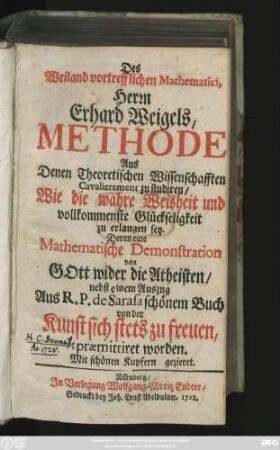 Des
Weiland vortrefflichen Mathematici,
Herrn
Erhard Weigels,
METHODE
Aus
Denen Theoretischen Wissenschafften
Cavalierement zu studiren/
Wie die wahre Weisheit und
vollkommenste Glückseligkeit
zu erlangen sey.
Deren eine
Mathematische Demonstration
von
GOtt wider die Atheisten/
nebst einem Auszug
Aus R. P. de Sarasa schönem Buch
von der
Kunst sich stets zu freuen,
præmittiret worden.
Mit schönen Kupfern gezieret.
Nürnberg/
In Verlegung Wolfgang-Moritz Endter/
Gedruckt bey Joh. Ernst Adelbulner. 1712.